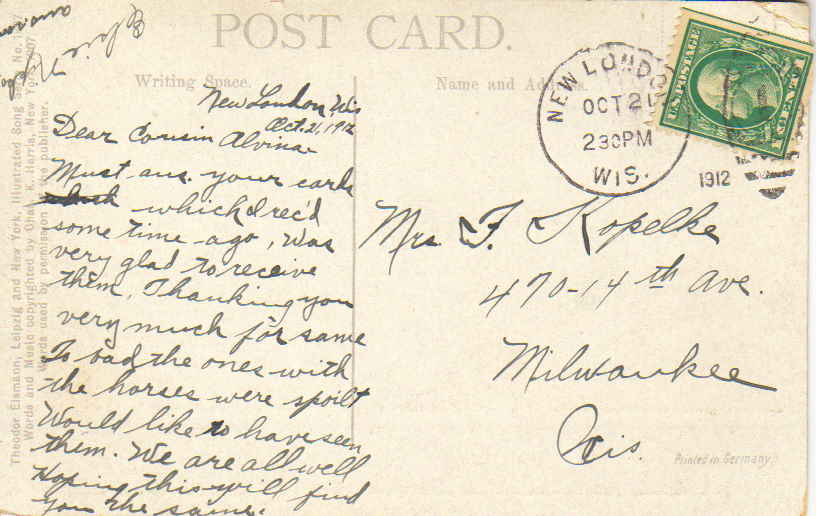 POST CARD.
Writing Space.
Name and Address.
New London, Wis
Oct. 21, 1912
Dear Cousin Alvina-
Must ans. your cards
which I rec'd
some time ago, Was
very glad to receive
them. Thanking you
very much for same
To bad the ones with
the horses were spoilt
Would like to have seen
them. We are all well
Hoping this will find
you the same.
Elsie
NEW LONDON
OCT 21
2 30 PM
WIS.
1912
U.S. POSTAGE
Mrs F. Kopelke
470-14th Ave.
Milwaukee
Wis.
Printed in Germany
Theodor Eismann, Leipzig and New York, Illustrated Song Series No.
Words and Music copyrighted by Chas. K. Harris, New York, 1907
Words used by permission of the publisher.